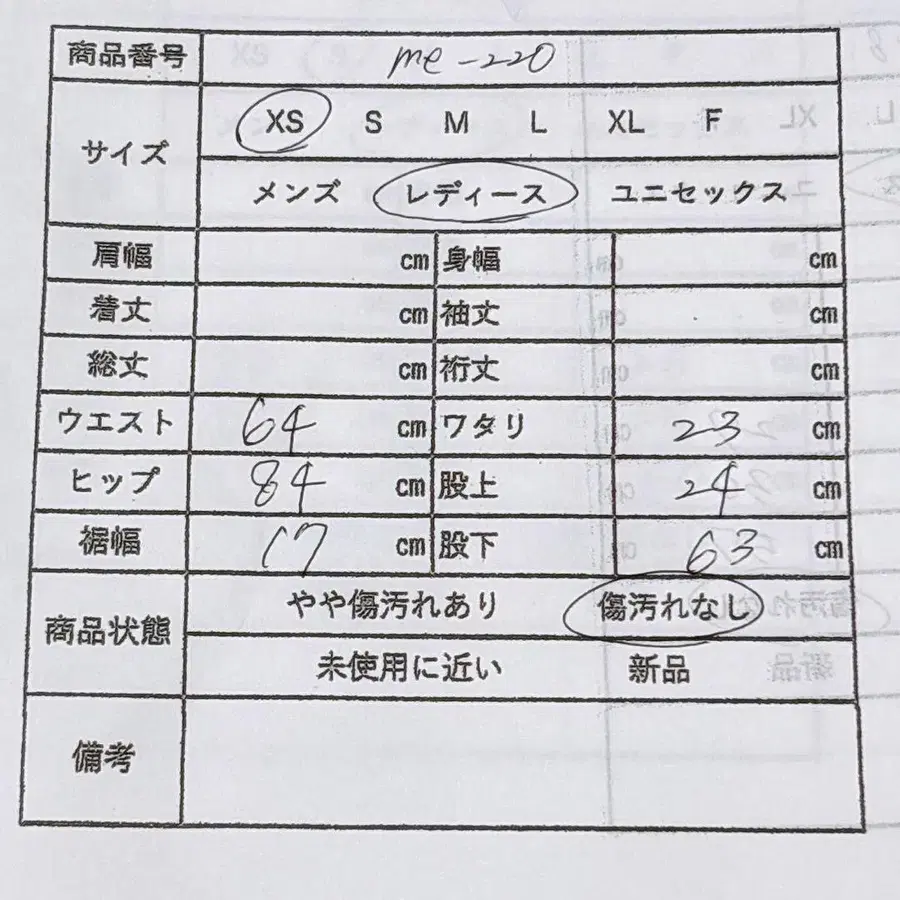 商品番号 me-220
サイズ XS S M L XL F
メンズ レディース ユニセックス
肩幅 cm 身幅 cm
着丈 cm 袖丈 cm
総丈 cm 裄丈 cm
ウエスト 64 cm ワタリ 23 cm
ヒップ 84 cm 股上 24 cm
裾幅 17 cm 股下 63 cm
商品状態 やや傷汚れあり 傷汚れなし
未使用に近い 新品
備考